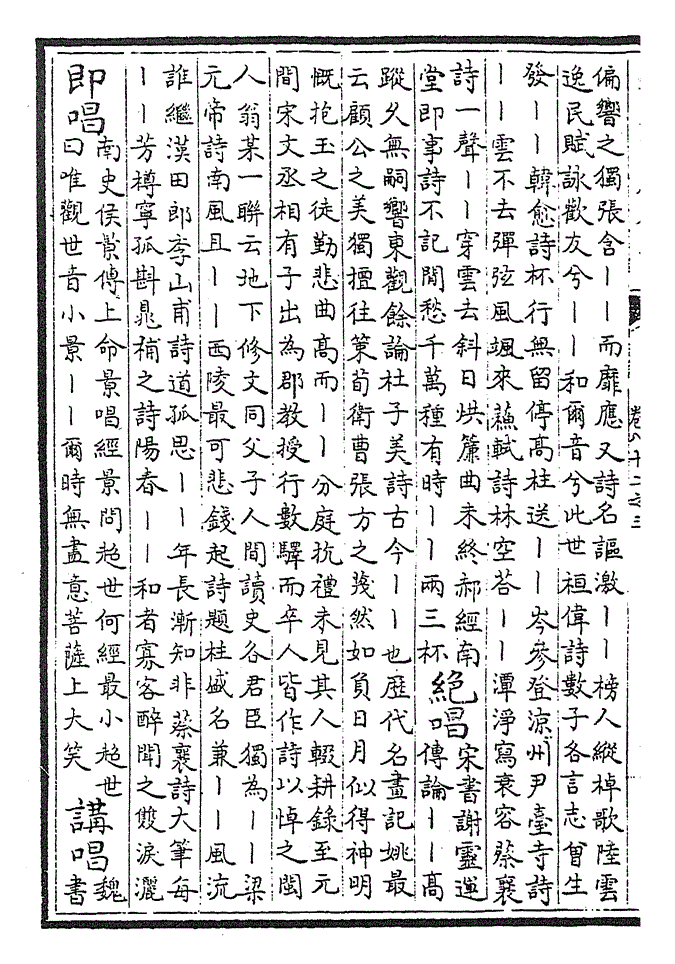 卷八十二之三
偏響之獨張含丨丨而靡應又詩名謳激丨丨榜人縱棹歌陸雲
逸民賦詠歡友兮丨丨和爾音兮此世桓偉詩數子各言志曾生
發丨丨韓愈詩杯行無留停高柱送丨丨岑參登涼州尹臺寺詩
丨丨雲不去彈弦風颯來蘇軾詩林空荅丨丨潭淨寫衰容蔡襄
詩一聲丨丨穿雲去斜日烘簾曲未終郝經南
堂即事詩不記閒愁千萬種有時丨丨兩三杯
絶唱
宋書謝靈運
傳論丨丨高
蹤久無嗣響東觀餘論杜子美詩古今丨丨也歷代名畫記姚最
云顧公之美獨擅往策荀衛曹張方之蔑然如負日月似得神明
慨抱玉之徒勤悲曲高而丨丨分庭抗禮未見其人輟耕錄至元
間宋文丞相有子出為郡教授行數驛而卒人皆作詩以悼之閩
人翁某一聯云地下修文同父子人間讀史各君臣獨為丨丨梁
元帝詩南風且丨丨西陵最可悲錢起詩題柱盛名兼丨丨風流
誰繼漢田郎李山甫詩道孤思丨丨年長漸知非蔡襄詩大筆每
丨丨芳樽寧孤斟晁補之詩陽春丨丨和者寡客醉聞之雙淚灑
即唱
南史侯景傳上命景唱經景問超世何經最小超世
曰唯觀世音小景丨丨爾時無盡意菩薩上大笑
講唱
魏
書